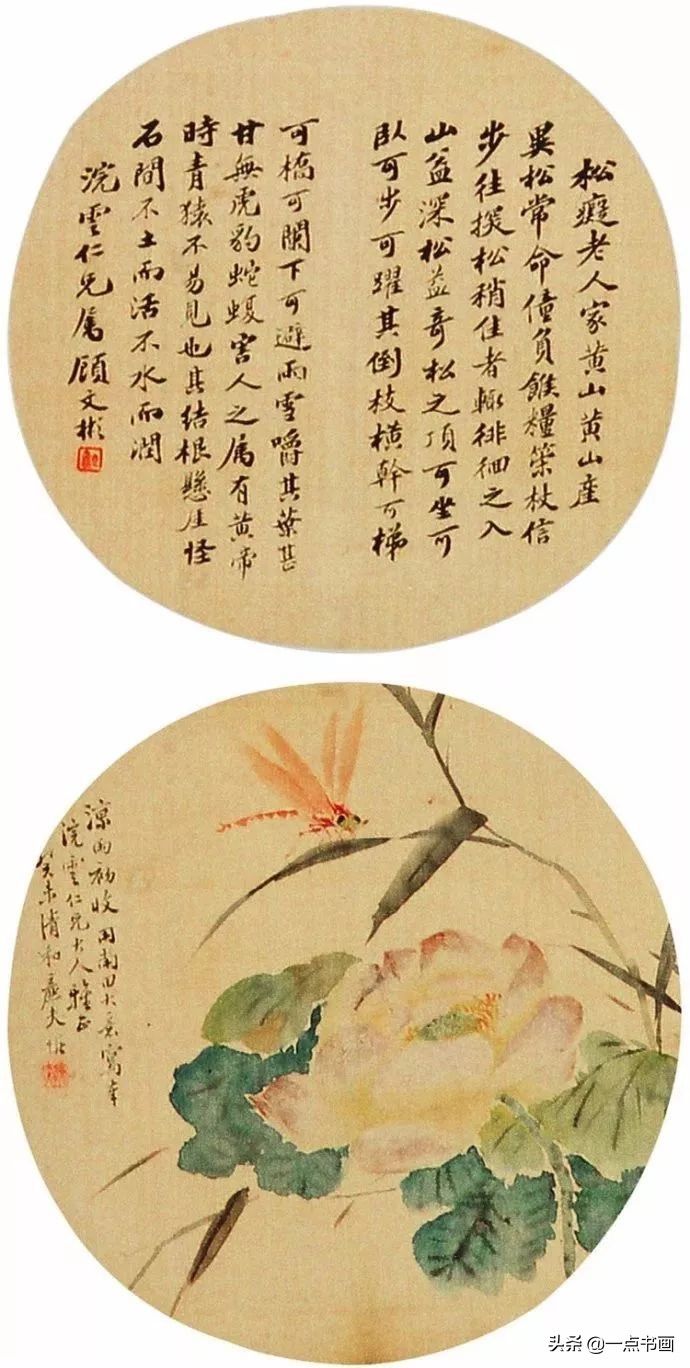 松癡老人家黃山黃山産
異松常命僮負餱糧築杖信
步往揬松稍佳者輒徘徊之入
山益深松益奇松之頂可坐可
臥可步可躍其倒枝橫幹可梯
可橋可關下可避雨雪嚼其葉甚
甘無虎豹蛇蝮害人之屬有黃帝
時青猿不易見也其結根懸崖怪
石間不土而活不水而潤
浣雲仁兄屬顧文彬
涼雨初收用南田大意寫奉
浣雲仁兄大人雅正
癸未清和
头条 @一点书画